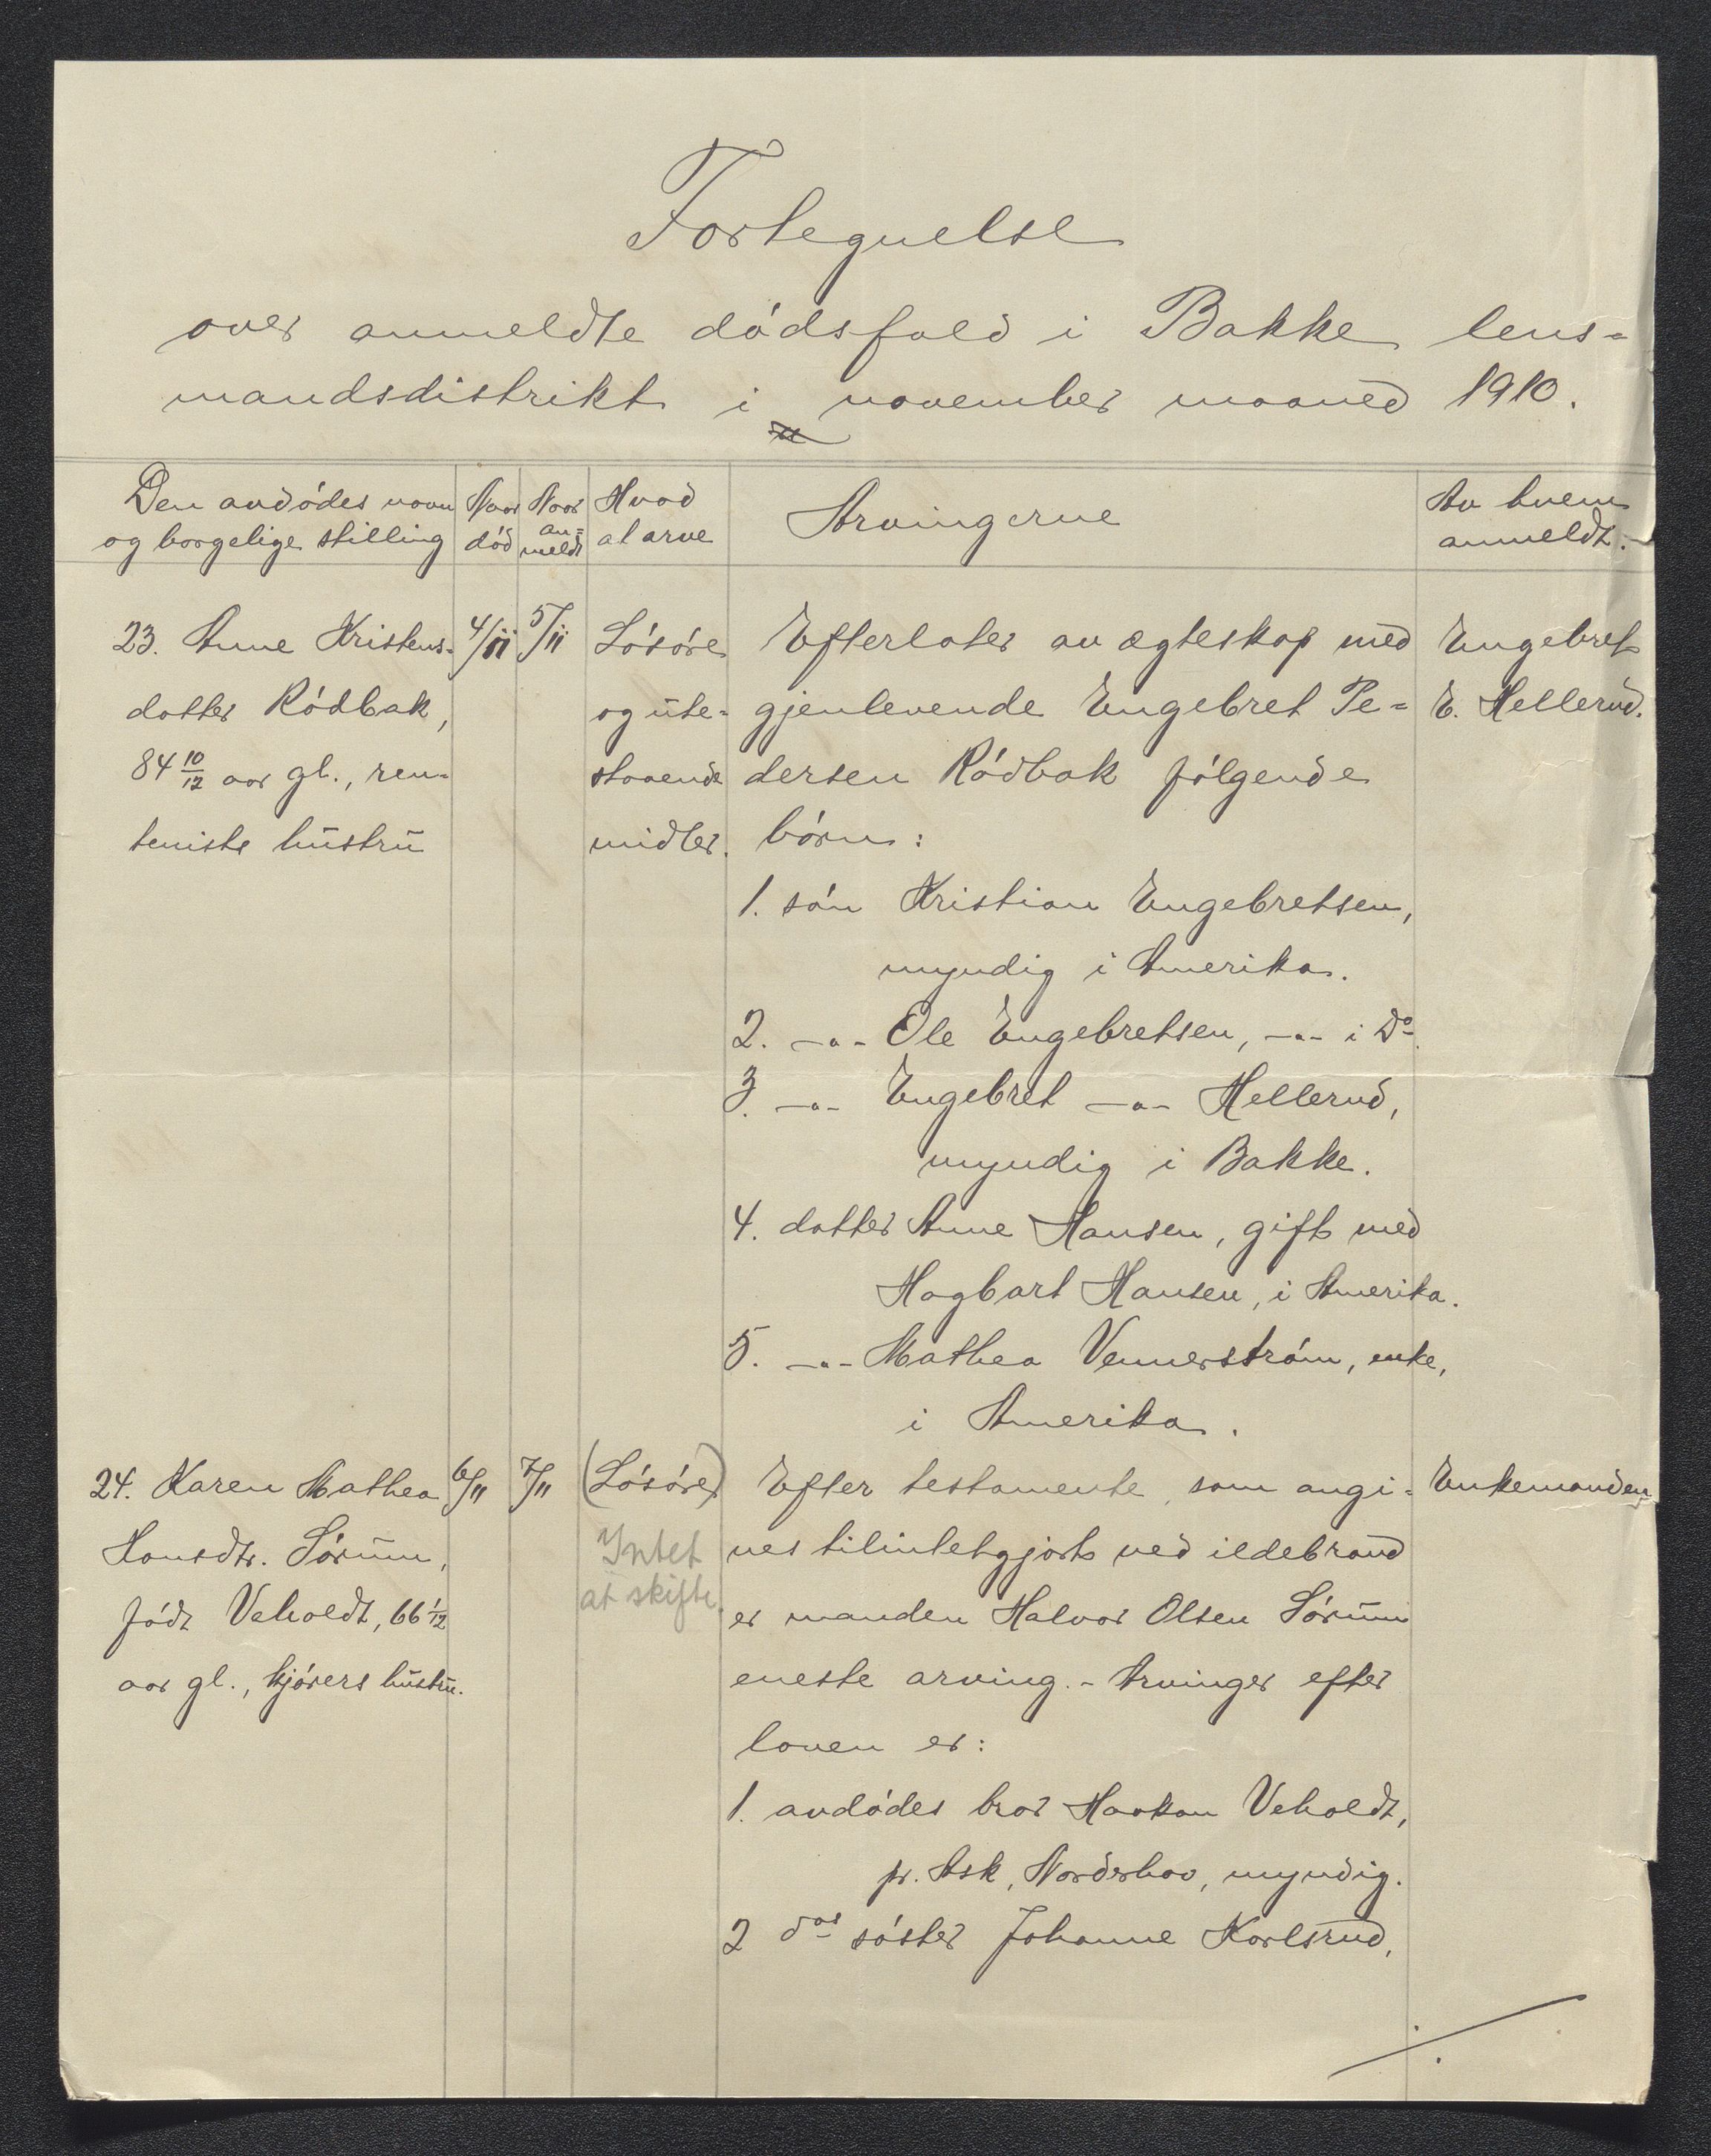 Fortegnelse
over anmeldte dødsfald i Bakke lens=
mandsdistrikt i november maaned 1910.
Den avdødes navn
og borgelige stilling
Naar
død
Naar
an=
meldt
Hvad
at arve
Arvingerne
Av hvem
anmeldt.
23. Anne Kristens-
datter Rødbak,
84 10/12 aar gl., ren-
teniste hustru
4/11
5/11
Løsøre
og ute=
staaende
midler.
Efterlater av ægteskap med
gjenlevende Engebret Pe=
dersen Rødbak følgende
børn:
1. søn Kristian Engebretsen,
myndig i Amerika.
2. -"- Ole Engebretsen, -"- i Do.
3. -"- Engebret -"- Hellerud,
myndig i Bakke.
4. datter Anne Hansen, gift med
Hagbart Hansen, i Amerika.
5. -"- Mathea Vennerstrøm, enke,
i Amerika.
Engebret
E. Hellerud.
24. Karen Mathea
Hansdtr. Sørum,
født Veholdt, 66 1/12
aar gl., kjørers hustru.
6/11
7/11
(Løsøre)
Intet
at skifte.
Efter testamente, som angi=
ves tilintetgjort ved ildebrand
er manden Halvor Olsen Sørum
eneste arving. - Arvinger efter
loven er:
1. avdødes bror Haakan Veholdt,
pr. Ask, Norderhov, myndig.
2 dos søster Johanne Karlsrud,
Enkemanden
./.